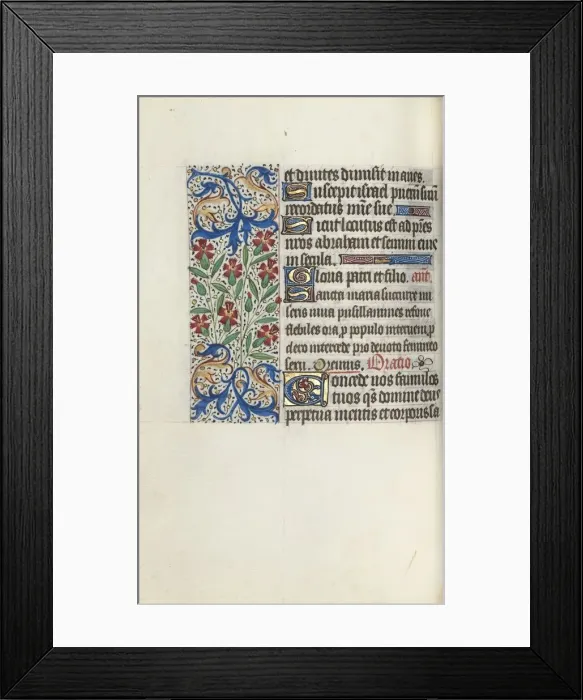 et diuites dimisit inanes.
Suscepit israel puerum suum
recordatus mie sue
Sicut locutus est ad pres
nros abraham et semini eius
in secula.
Gloria patri et filio. ant.
Sancta maria succurre mi
seris iuua pusillanimes refoue
flebiles ora p populo interueni p
clero intercede pro deuoto femineo
sexu. Oremus. Oratio.
Concede nos famulos
tuos qs domine deus
perpetua mentis et corporis sa